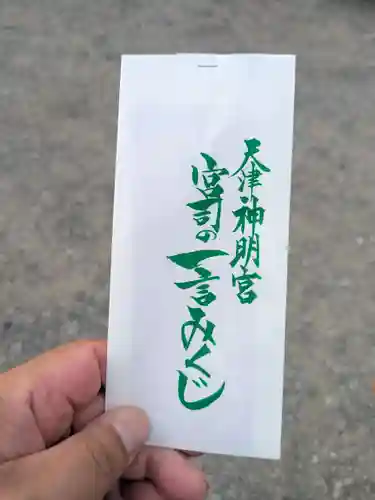 天津神明宮
宮司の一言みくじ